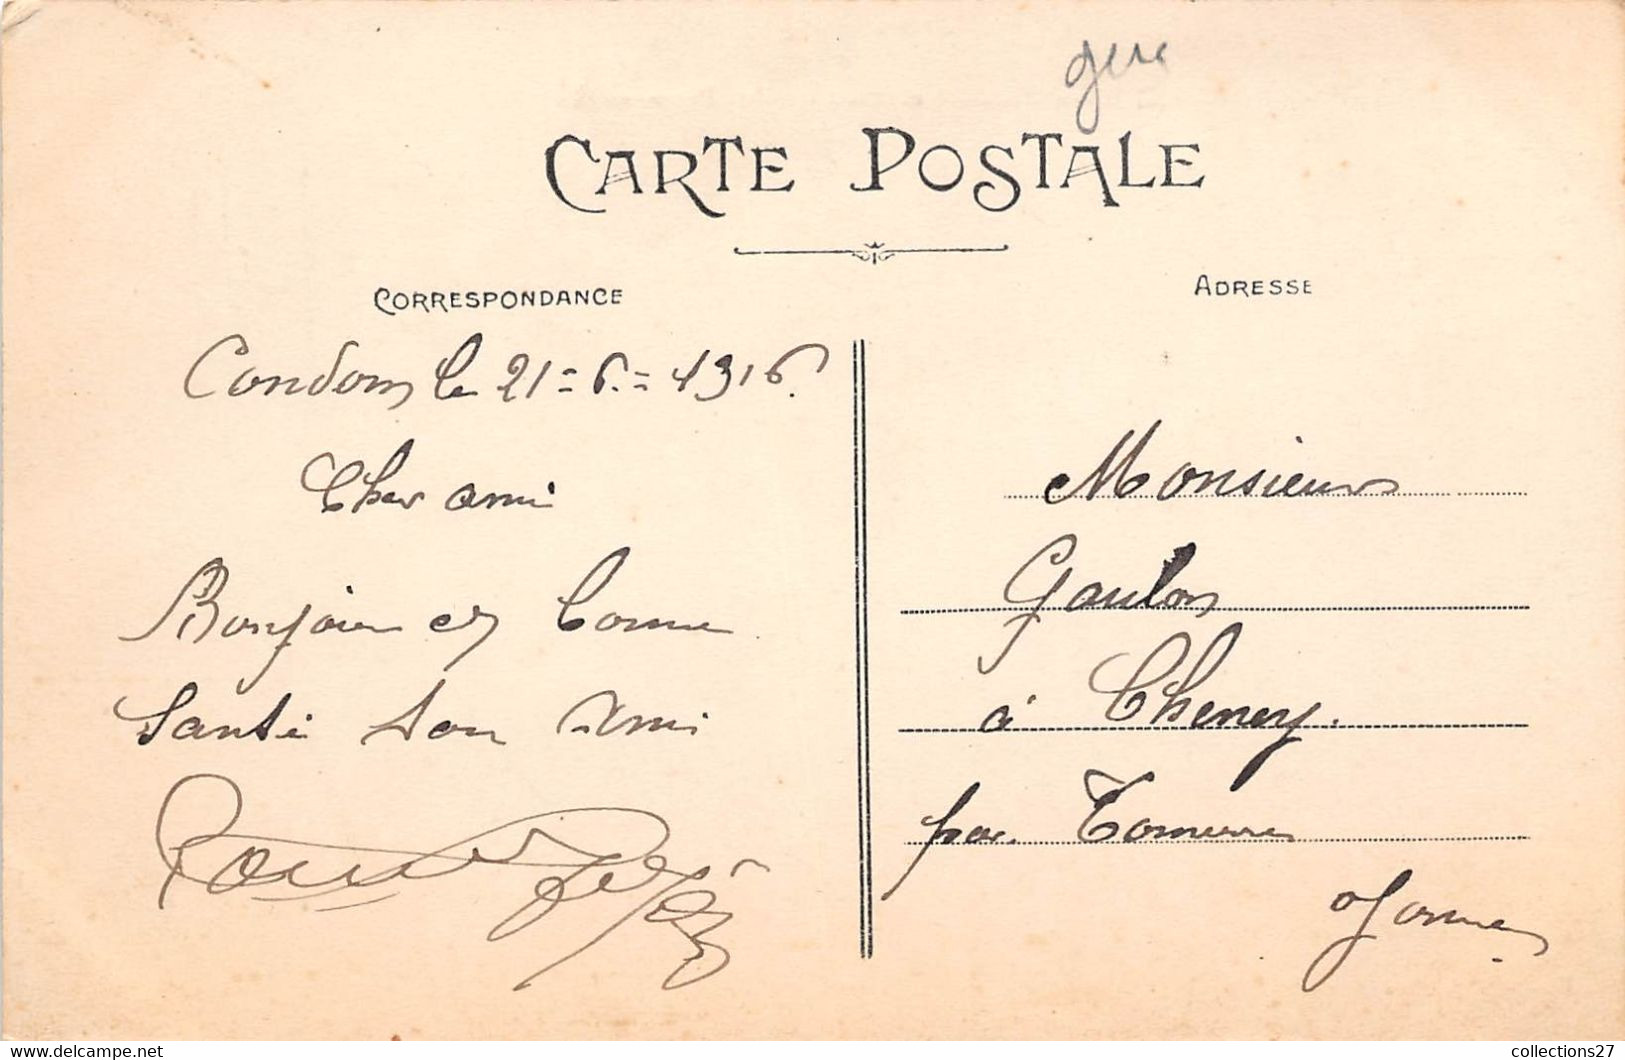 gers
CARTE POSTALE
CORRESPONDANCE
ADRESSE
Condom le 21=6.=1916.
Cher ami
Bonjour et bonne
Santé ton Ami
Monsieur
Gaulon
à Cheney.
par. Tonnerre
Yonne
collections27